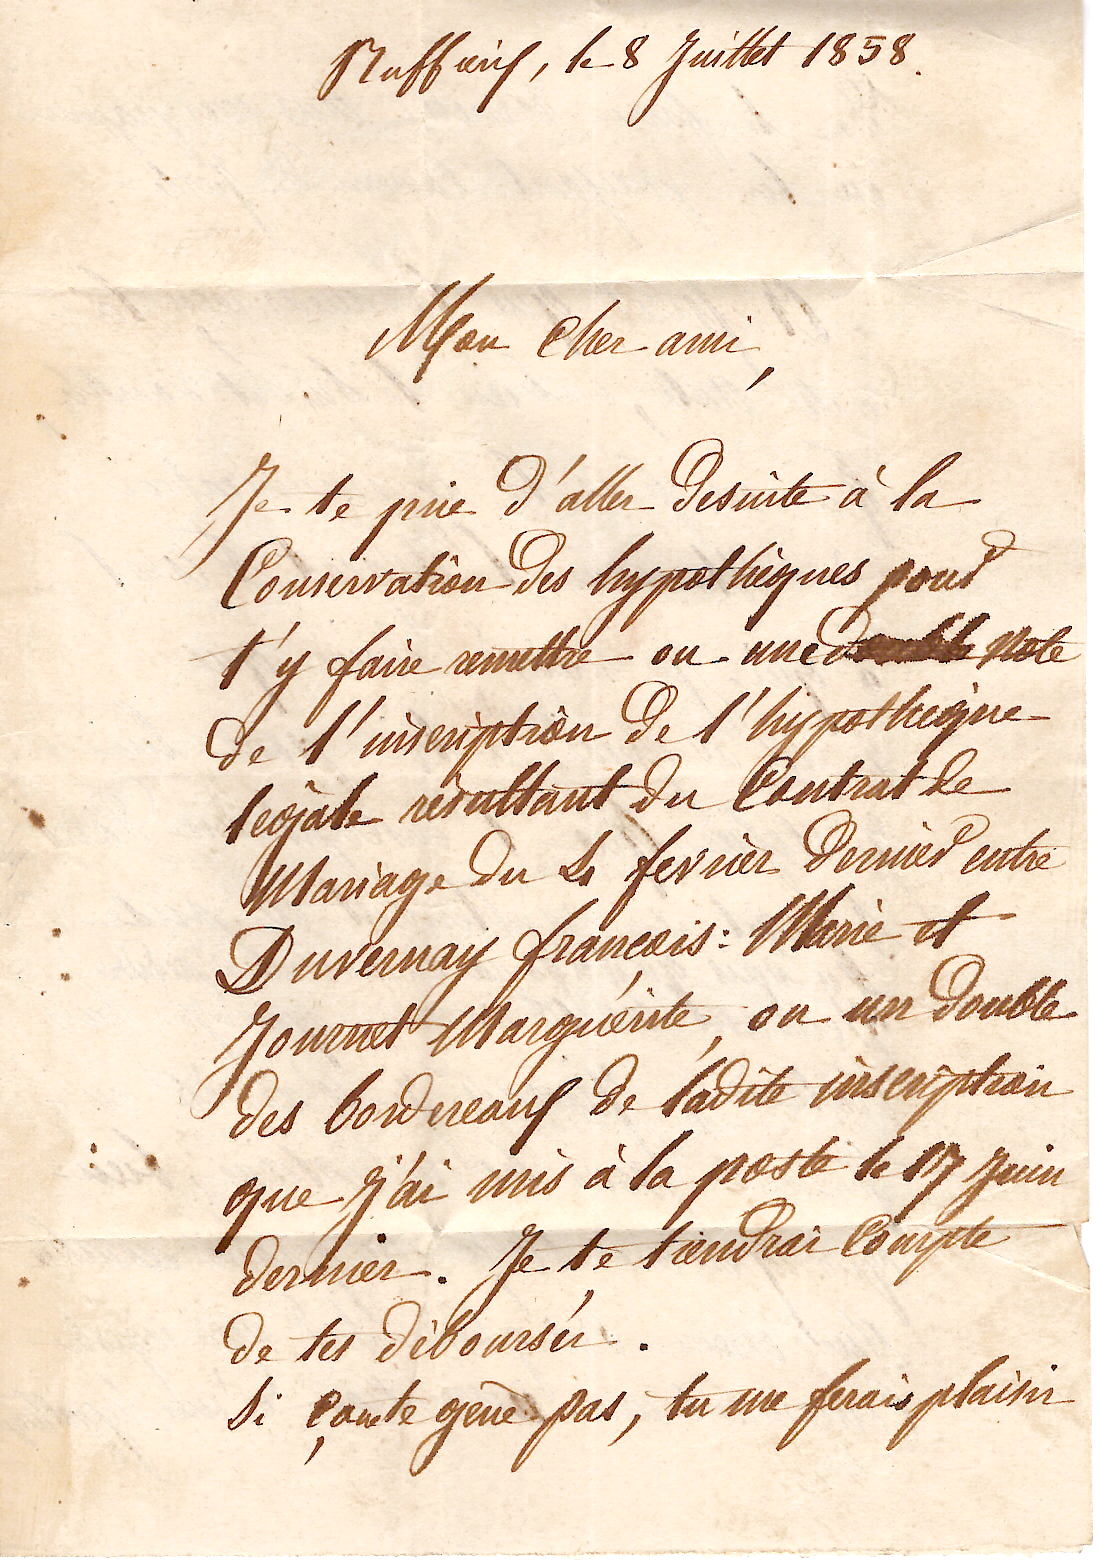 Ruffieux, le 8 Juillet 1858.
Mon cher ami,
Je te prie d'aller desuite à la
Conservation des hypothèques pour
t'y faire remettre ou une note
de l'inscription de l'hypothèque
légale résultant du Contrat de
Mariage du 4 fevrier dernier entre
Duvernay françois-Marie et
Journet Marguérite, ou un double
des bordereaux de ladite inscription
que j'ai mis à la poste le 17 Juin
dernier. Je te tiendrai Compte
de tes déboursés.
Si ça ne te gène pas, tu me ferais plaisir